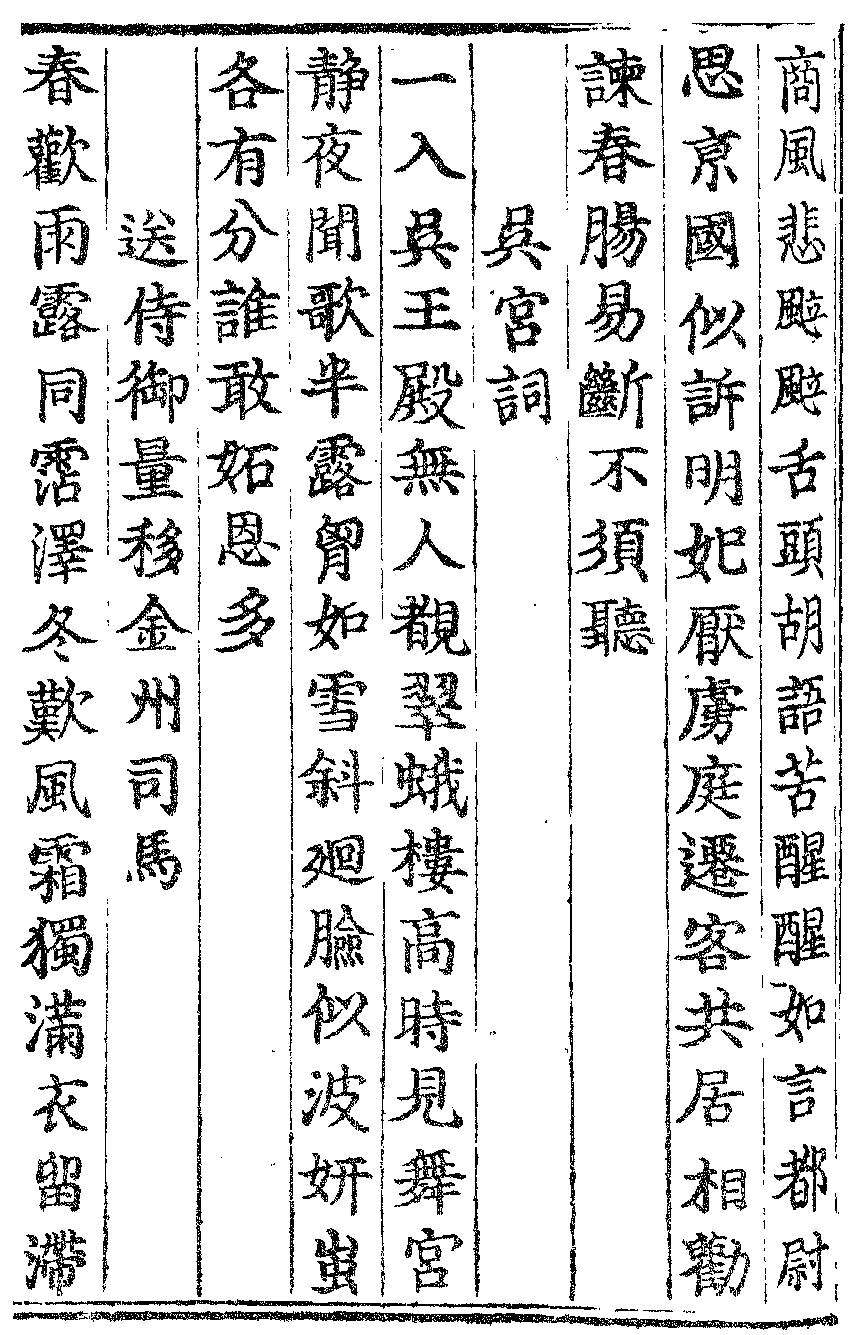 商風悲颼颼舌頭胡語苦醒醒如言都尉
思京國似訴明妃厭虜庭遷客共居相勸
諫春腸易斷不須聽
吳宮詞
一入吳王殿無人覩翠蛾樓高時見舞宮
静夜聞歌半露胷如雪斜廻臉似波妍蚩
各有分誰敢妬恩多
送侍御量移金州司馬
春歡雨露同霑澤冬歎風霜獨滿衣留滯